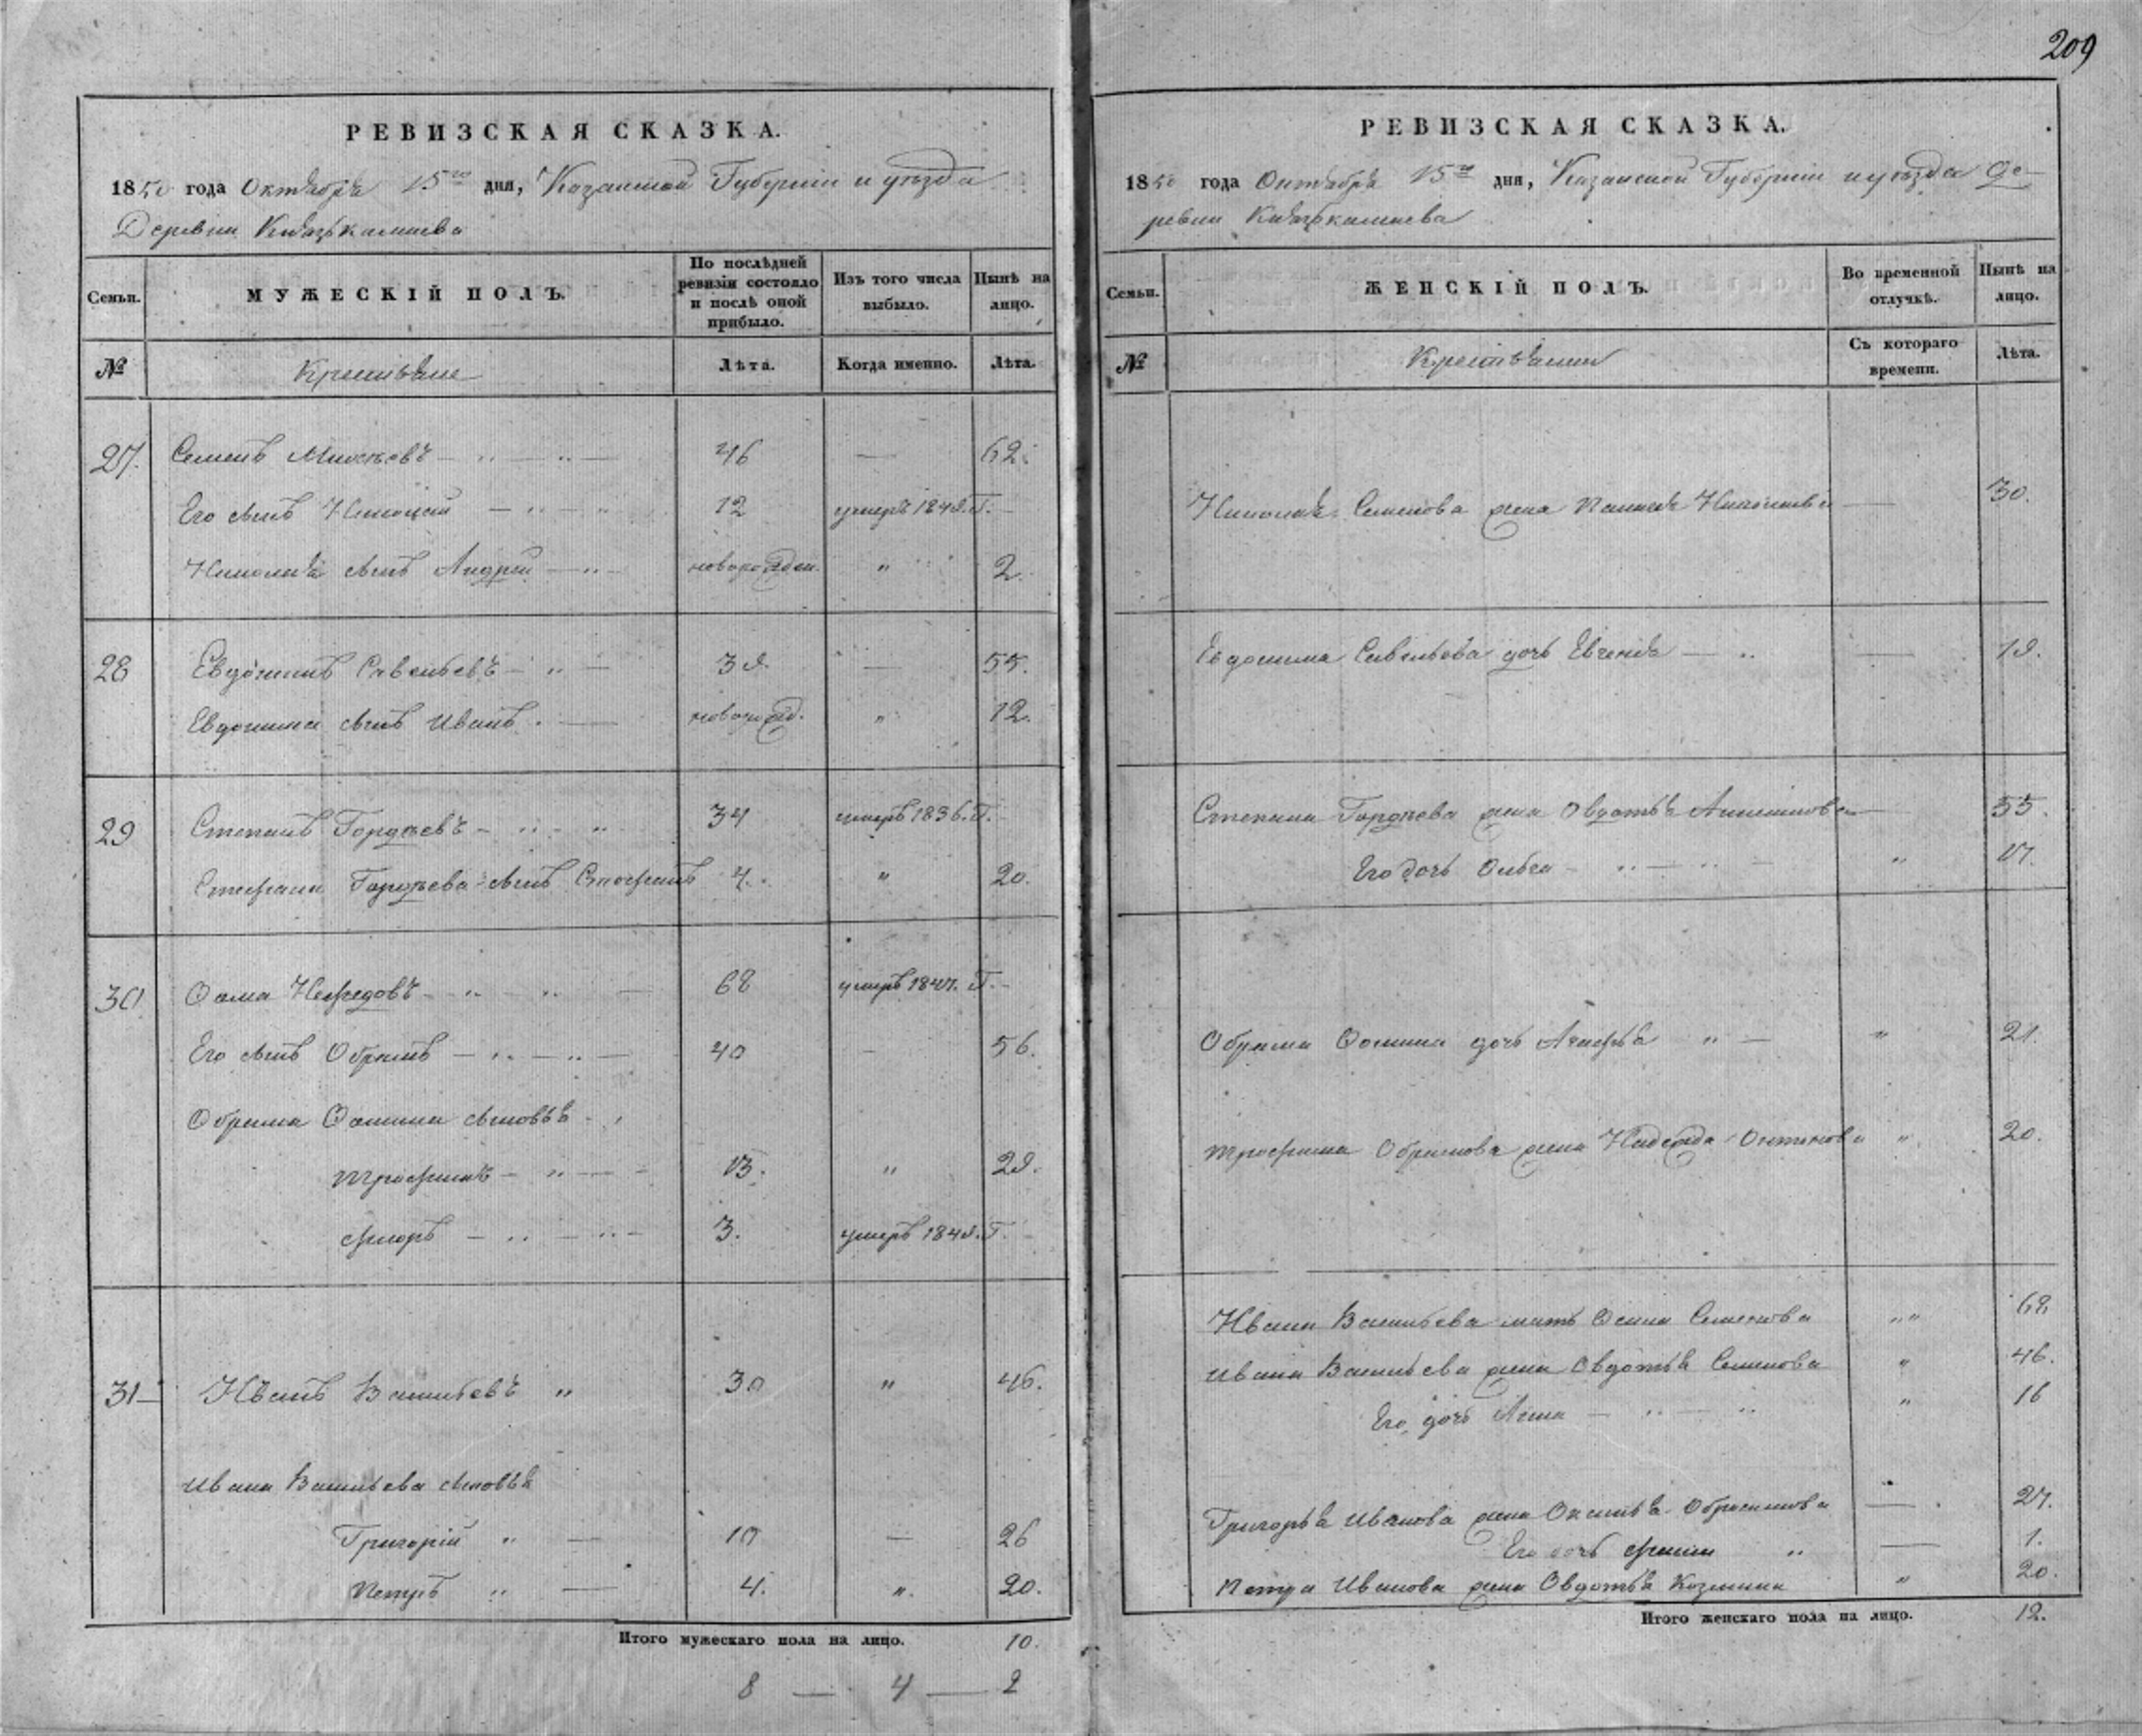 209
РЕВИЗСКАЯ СКАЗКА.
1850 года Октября 15го дня, Казанской Губернии и уезда
Деревни Князькамаева
Семьи.
МУЖЕСКІЙ ПОЛЪ.
По послѣдней ревизіи состояло и послѣ оной прибыло.
Изъ того числа выбыло.
Нынѣ на лицо.
№
Крестьяне
Лѣта.
Когда именно.
Лѣта.
27. Семенъ 46 — 62.
Его сынъ Николай 12 умеръ 184 Г.
Николая сынъ Андрей новорожден. " 2.
28 Евдокимъ Савельевъ 39. — 55.
Евдокима сынъ Иванъ новорожд. " 12.
29 Степанъ Гордѣевъ 34 умеръ 1836. Г.
Гордѣева сынъ 4. " 20.
30 Ѳома Нефедовъ 68 умеръ 1847. Г.
Его сынъ Обрамъ 40 — 56.
Обрама Ѳомина сыновья
Трофимъ 13. " 29.
Ѳедоръ 3. умеръ 184 Г.
31 Иванъ Васильевъ " 30 " 46.
Ивана Васильева сыновья
Григорій " — 10 — 26
Петръ " — 4. " 20.
Итого мужескаго пола на лицо. 10.
8 — 4 — 2
РЕВИЗСКАЯ СКАЗКА.
1850 года Октября 15го дня, Казанской Губерніи и уѣзда Де-
ревни Князькамаева
Семьи.
ЖЕНСКІЙ ПОЛЪ.
Во временной отлучкѣ.
Нынѣ на лицо.
№
Крестьянки
Съ котораго времени.
Лѣта.
Николая Семенова жена — 30.
Евдокима Савельева дочь — 19.
Степана Гордѣева жена Овдотья — 55.
Его дочь Ольга " 17.
Обрама Ѳомина дочь " 21.
Трофима Обрамова жена Надежда " 20.
Ивана Васильева мать Семенова " 68
Ивана Васильева жена Овдотья Семенова " 46.
Его дочь Анна " 16
Григорья Иванова жена — 27.
Его дочь — 1.
Петра Иванова жена Овдотья Козмина " 20.
Итого женскаго пола на лицо. 12.